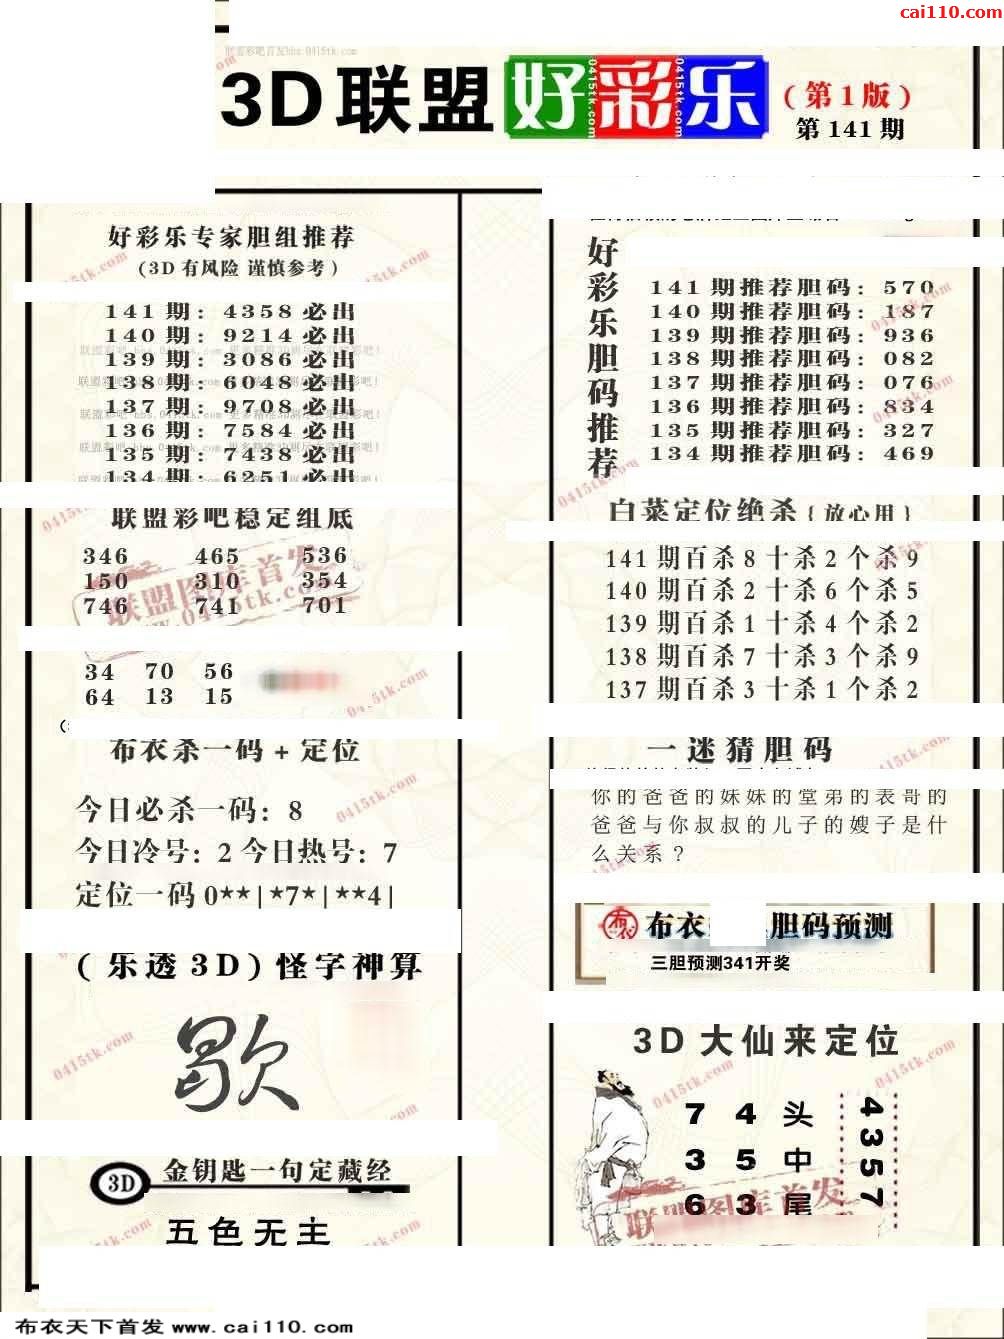 cai110.com
3D联盟好彩乐(第1版)
第141期
好彩乐专家胆组推荐
(3D有风险 谨慎参考)
141期: 4358必出
140期: 9214必出
139期: 3086必出
138期: 6048必出
137期: 9708必出
136期: 7584必出
135期: 7438必出
134期: 6251必出
联盟彩吧稳定组底
346 465 536
150 310 354
746 741 701
34 70 56
64 13 15
布衣杀一码+定位
今日必杀一码: 8
今日冷号: 2 今日热号: 7
定位一码 0**|*7*|**4|
(乐透3D)怪字神算
歇
3D 金钥匙一句定藏经
五色无主
好彩乐胆码推荐
141期推荐胆码: 570
140期推荐胆码: 187
139期推荐胆码: 936
138期推荐胆码: 082
137期推荐胆码: 076
136期推荐胆码: 834
135期推荐胆码: 327
134期推荐胆码: 469
白菜定位绝杀{放心用}
141期百杀8十杀2个杀9
140期百杀2十杀6个杀5
139期百杀1十杀4个杀2
138期百杀7十杀3个杀9
137期百杀3十杀1个杀2
一迷猜胆码
你的爸爸的妹妹的堂弟的表哥的
爸爸与你叔叔的儿子的嫂子是什
么关系?
布衣 胆码预测
三胆预测341开奖
3D大仙来定位
7 4 头
3 5 中
6 3 尾
4357
联盟图库首发
0415tk.com
布衣天下首发 www.cai110.com